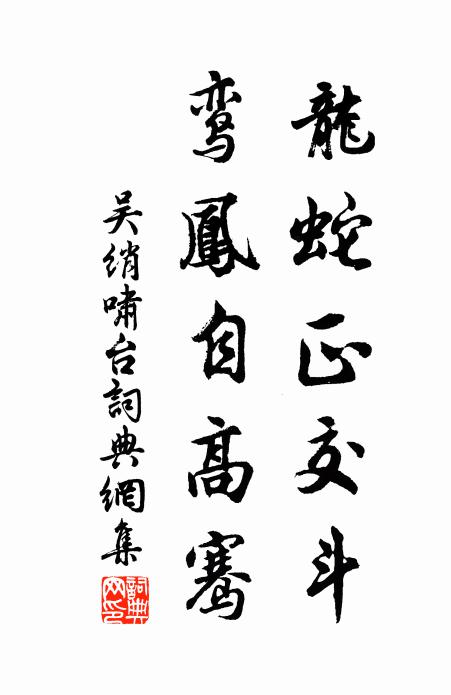 龍蛇正交斗
鸾鳳自高骞
吴绡啸台詞典網集
詞典网印